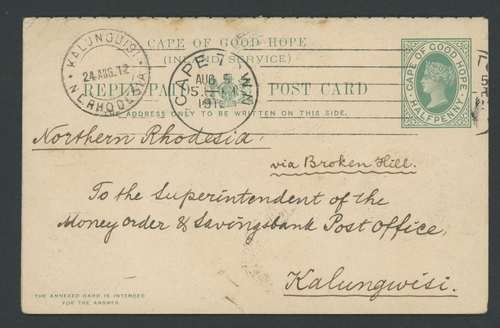 CAPE OF GOOD HOPE
(INLAND SERVICE)
REPLY PAID POST CARD
THE ADDRESS ONLY TO BE WRITTEN ON THIS SIDE.
CAPE OF GOOD HOPE
HALFPENNY
24 AUG. 12
CAPE TOWN
AUG 5
Northern Rhodesia.
via Broken Hill.
To the Superintendent of the
Money order & Savingsbank Post Office,
Kalungwisi.
THE ANNEXED CARD IS INTENDED
FOR THE ANSWER.